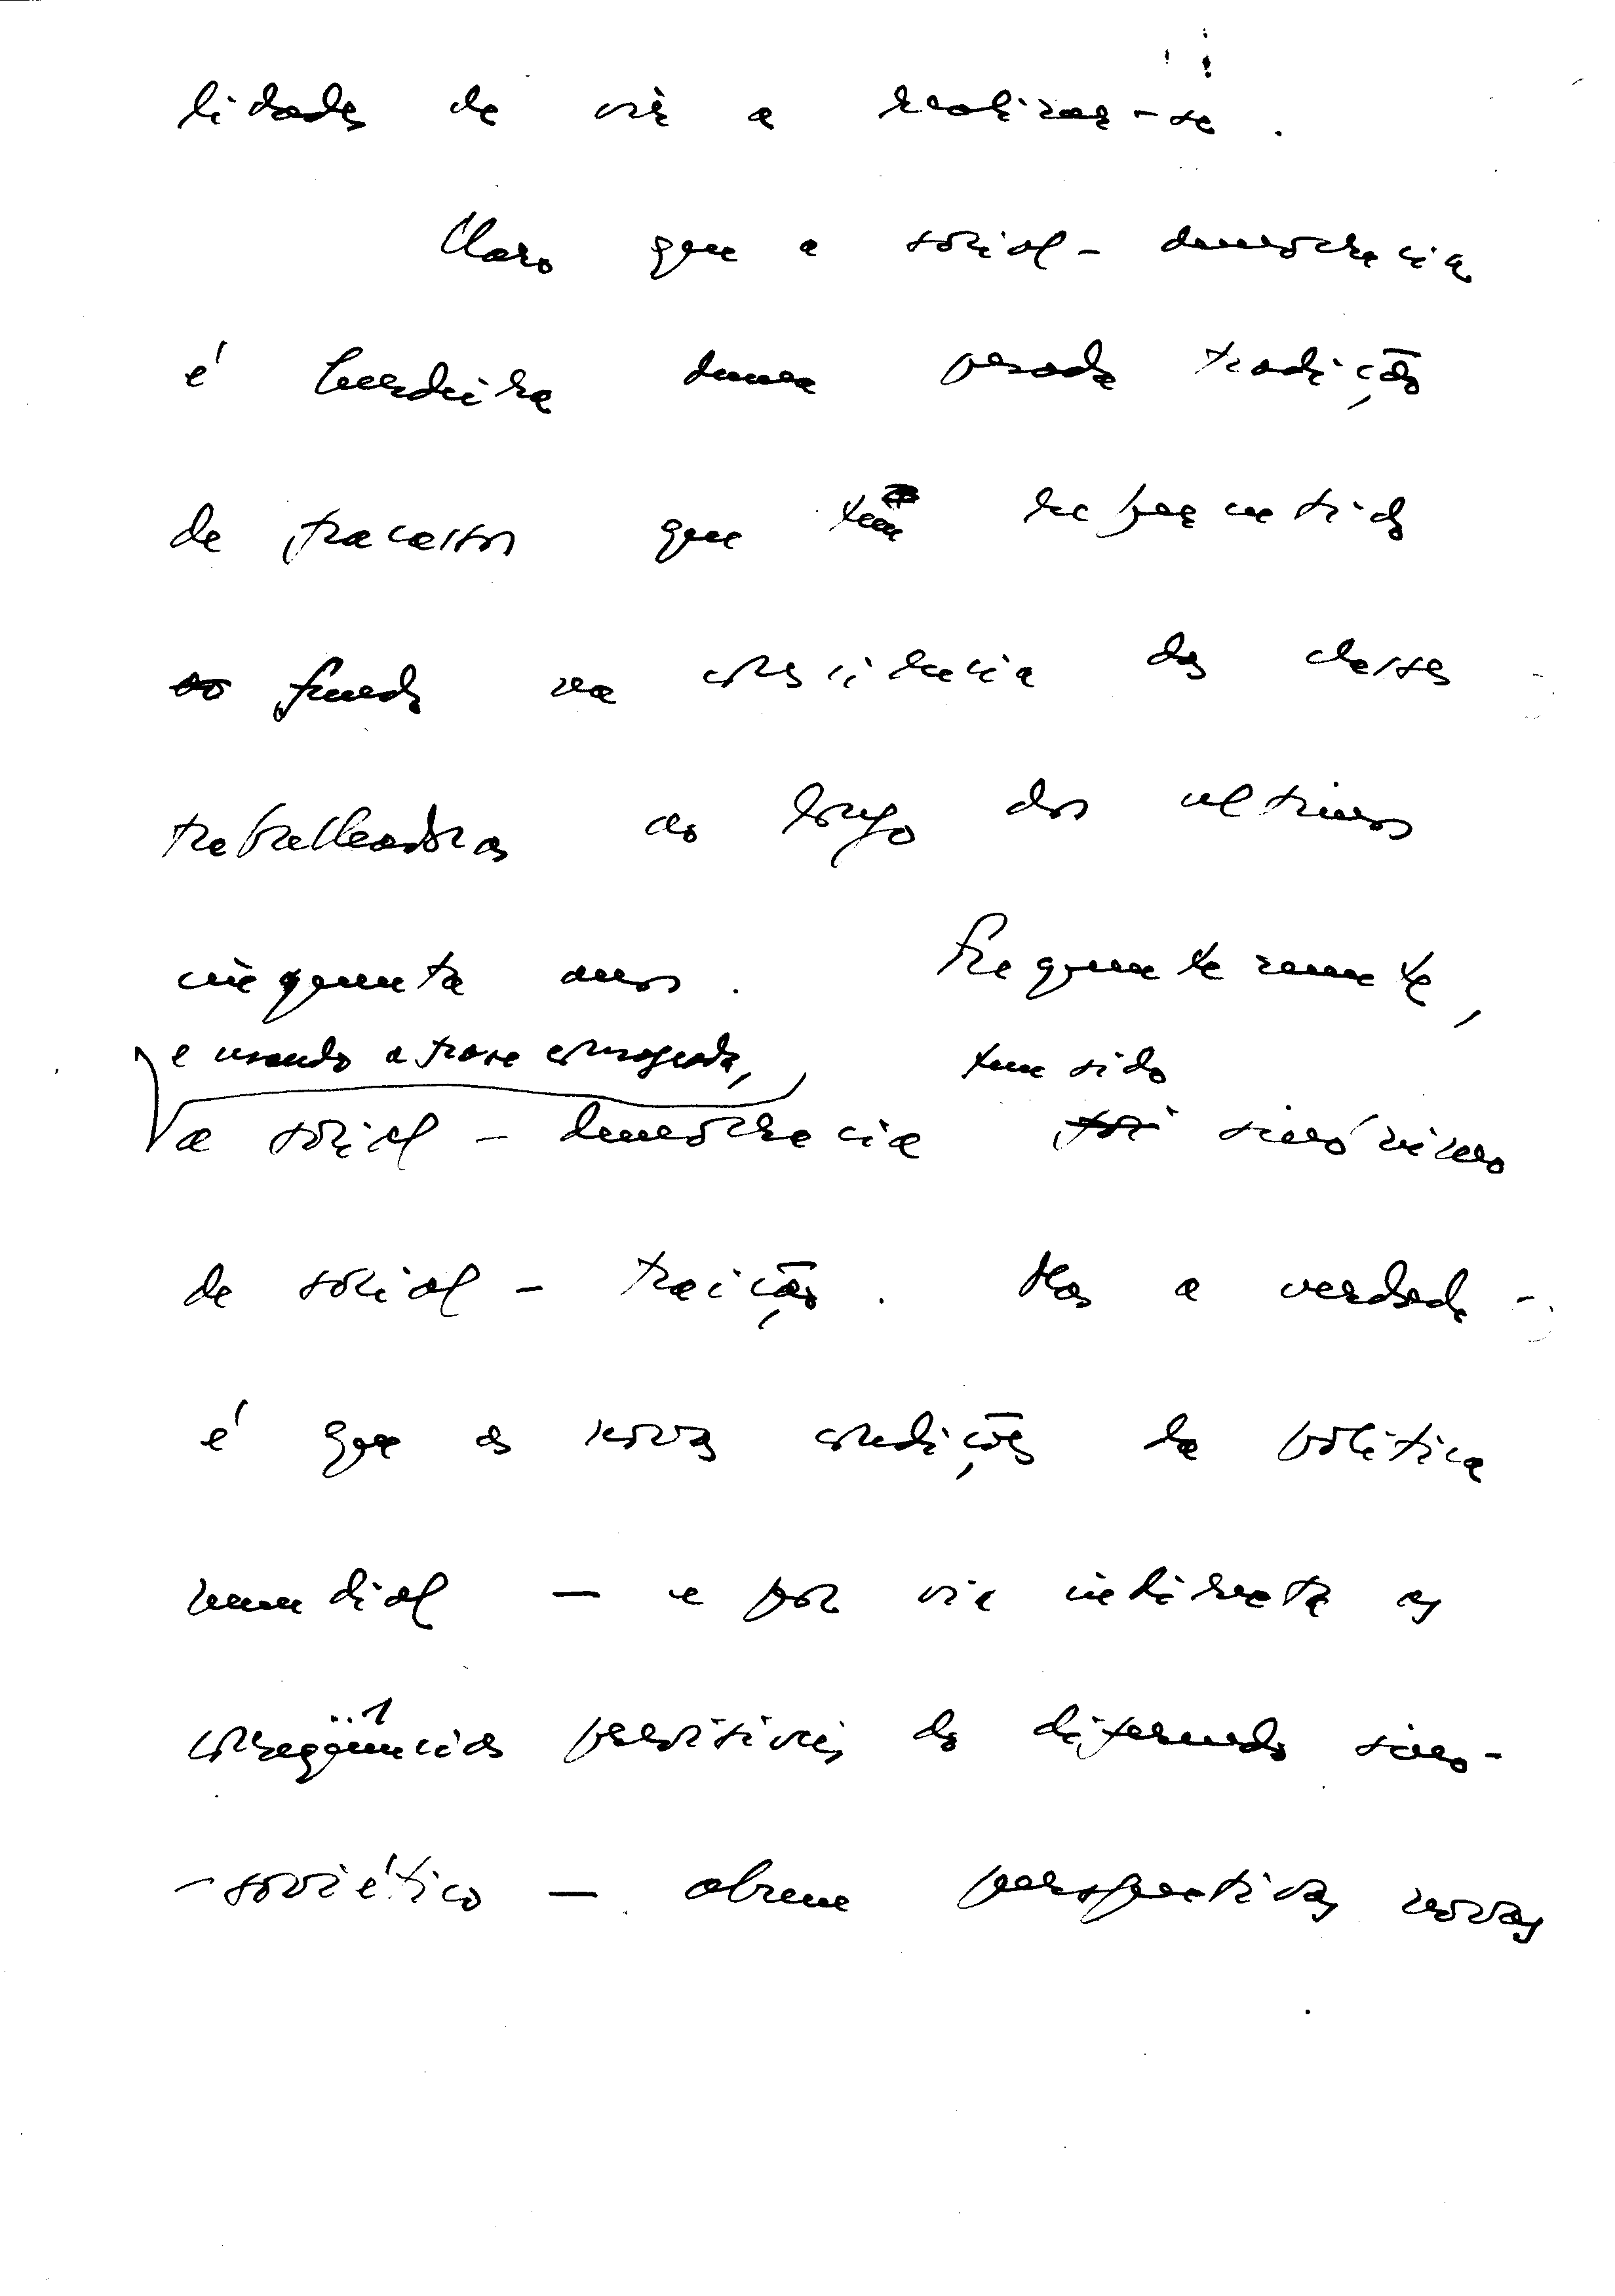 lidade de vir a realizar-se.
Claro que a social-democracia
é herdeira duma pesada tradição
de fracassos que tem repercutido
fundo na consciência das classes
trabalhadoras ao longo dos ultimos
cinquenta anos. Frequentemente,
e usando a frase consagrada, tem sido
a social-democracia foi sinónimo
de social-traição. Mas a verdade
é que as novas condições da política
mundial — e por via indirecta as
conseqüências previsíveis do diferendo sino-
-soviético — abrem perspectivas novas